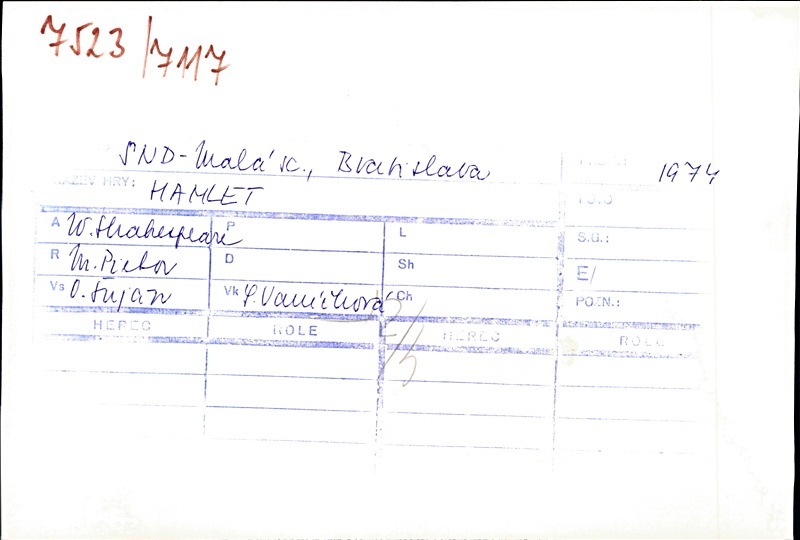 7523/7117
SND-Malá sc., Bratislava 1974
NÁZEV HRY: HAMLET
A W. Shakespeare P L S.G.:
R M. Pietor D Sh E/
Vs O. Šujan Vk Ľ. Vaníčková Ch POZN.:
HEREC ROLE HEREC ROLE